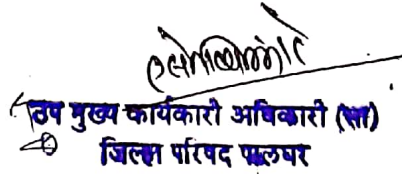 उप मुख्य कार्यकारी अधिकारी (सा)
जिल्हा परिषद पालघर